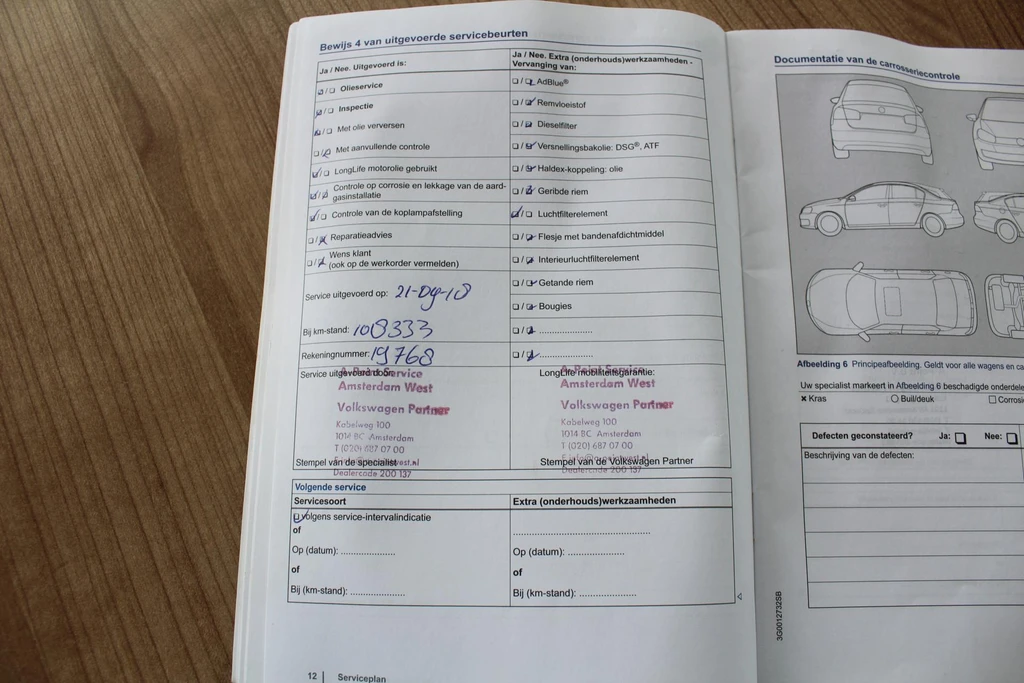 Bewijs 4 van uitgevoerde servicebeurten
Ja / Nee. Uitgevoerd is:
☑/☐ Olieservice
☑/☐ Inspectie
☑/☐ Met olie verversen
☐/☑ Met aanvullende controle
☑/☐ LongLife motorolie gebruikt
☑/☑ Controle op corrosie en lekkage van de aard-
gasinstallatie
☑/☐ Controle van de koplampafstelling
☐/☑ Reparatieadvies
☐/☑ Wens klant
(ook op de werkorder vermelden)
Service uitgevoerd op: 21-09-18
Bij km-stand: 108333
Rekeningnummer: 19768
Service uitgevoerd door:
A-Point Service
Amsterdam West
Volkswagen Partner
Kabelweg 100
1014 BC Amsterdam
T (020) 687 07 00
Stempel van de specialist
Dealercode 200 137
Ja / Nee. Extra (onderhouds)werkzaamheden -
Vervanging van:
☐/☑ AdBlue®
☐/☑ Remvloeistof
☐/☑ Dieselfilter
☐/☑ Versnellingsbakolie: DSG®, ATF
☐/☑ Haldex-koppeling: olie
☐/☑ Geribde riem
☑/☐ Luchtfilterelement
☐/☑ Flesje met bandenafdichtmiddel
☐/☑ Interieurluchtfilterelement
☐/☑ Getande riem
☐/☑ Bougies
☐/☑ ......................
☐/☑ ......................
LongLife mobiliteitsgarantie:
A-Point Service
Amsterdam West
Volkswagen Partner
Kabelweg 100
1014 BC Amsterdam
T (020) 687 07 00
Stempel van de Volkswagen Partner
Dealercode 200 137
Volgende service
Servicesoort
☑ volgens service-intervalindicatie
of
Op (datum): ......................
of
Bij (km-stand): ......................
Extra (onderhouds)werkzaamheden
......................................................
Op (datum): ......................
of
Bij (km-stand): ......................
12 | Serviceplan
Documentatie van de carrosseriecontrole
Afbeelding 6 Principeafbeelding. Geldt voor alle wagens en
Uw specialist markeert in Afbeelding 6 beschadigde
× Kras ○ Buil/deuk ☐
Defecten geconstateerd? Ja: ☐ Nee: ☐
Beschrijving van de defecten:
3G0012732SB